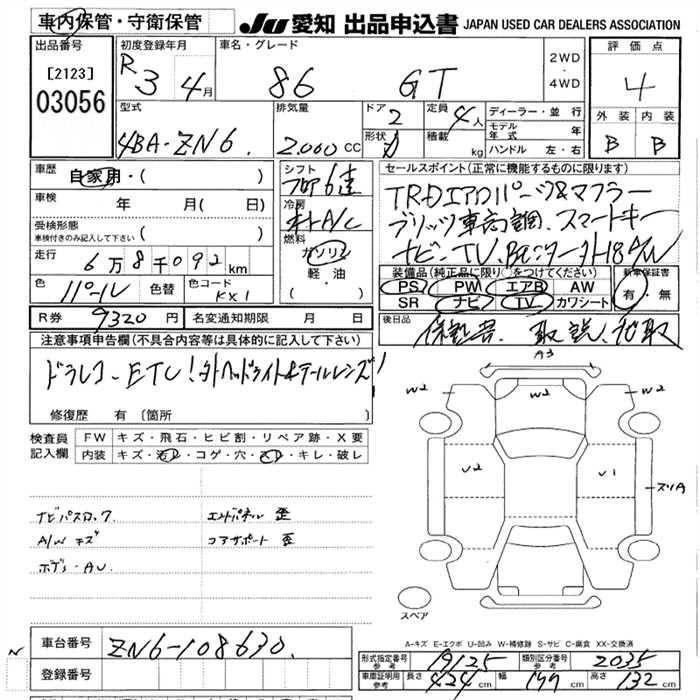 車内保管・守衛保管
JU 愛知 出品申込書 JAPAN USED CAR DEALERS ASSOCIATION
出品番号
[2123]
03056
初度登録年月
R 3 4月
車名・グレード
86 GT
2WD
・
4WD
評価点
4
外装 内装
B B
型式
4BA-ZN6
排気量
2,000 CC
ドア
2
形状
定員
4人
積載
kg
ディーラー・並行
モデル年式 年
ハンドル 左・右
車歴 自家用・( )
車検 年 月( 日)
受検形態
車検付きのみ記入して下さい ( )
走行 6万8千092km
色 パール 色替 色コード KX1
シフト
フロア6速
冷房
オートA/C
燃料
ガソリン
軽油
( )
セールスポイント(正常に機能するものに限ります)
TRDエアロパーツ&マフラー
ブリッツ車高調、スマートキー
ナビ-TV、
装備品(純正品に限り○をつけてください)
PS PW エアB AW
SR ナビ TV カワシート
新車保証書
有・無
R券 9320円 名変通知期限 月 日
後日品 保証書、取説、
注意事項申告欄(不具合内容等は具体的に記入して下さい)
ドラレコ-ETC!外ヘッドライト&テールレンズ!
修復歴 有〔箇所
検査員記入欄
FW キズ・飛石・ヒビ割・リペア跡・X要
内装 キズ・汚レ・コゲ・穴・スレ・キレ・破レ
ナビパスロック エンドパネル 歪
A/W キズ コアサポート 歪
ボデーAU
A3
W2 W2 W2
U2 U1
スリA
スペア
A-キズ E-エクボ U-凹み W-補修跡 S-サビ C-腐食 XX-交換済
車台番号 ZN6-108630
登録番号
形式指定番号参考 19125 類別区分番号参考 2035
車庫証明用参考 長さ 424cm 幅 177cm 高さ 132cm